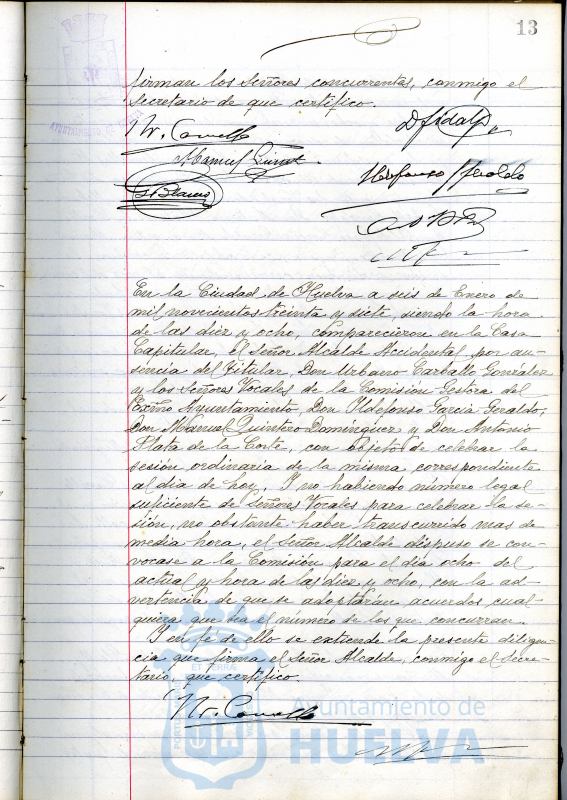 13
firman los Señores concurrentes, conmigo el
Secretario de que certifico.
En la Ciudad de Huelva a seis de Enero de
mil novecientos treinta y siete, siendo la hora
de las diez y ocho, comparecieron en la Casa
Capitular, el Señor Alcalde Accidental por au-
sencia del Titular, Don Urbano Carballo González
y los Señores Vocales de la Comisión Gestora del
Exmo Ayuntamiento, Don Ildefonso García Geraldo,
Don Manuel Quintero Domínguez y Don Antonio
Plata de la Corte, con objeto de celebrar la
sesión ordinaria de la misma correspondiente
al dia de hoy. Y no habiendo número legal
suficiente de Señores Vocales para celebrar la se-
sión, no obstante haber transcurrido mas de
media hora, el Señor Alcalde dispuso se con-
vocase a la Comisión para el día ocho del
actual y hora de las diez y ocho, con la ad-
vertencia de que se adoptarán acuerdos cual-
quiera que sea el número de los que concurran.
Y en fe de ello se extiende la presente diligen-
cia que firma el Señor Alcalde, conmigo el Secre-
tario, que certifico.
Ayuntamiento de
HUELVA